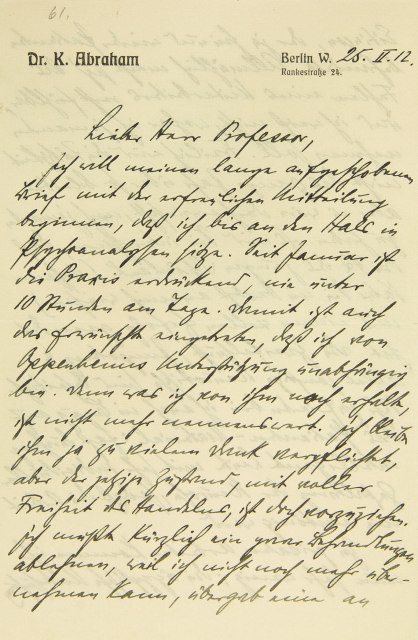 61.
Dr. K. Abraham
Berlin W. 25. II. 12.
Rankestraße 24.
Lieber Herr Professor,
Ich will meinen lange aufgeschobenen
Brief mit der erfreulichen Mitteilung
beginnen, daß ich bis an den Hals in
Psychoanalysen sitze. Seit Januar ist
die Praxis erdrückend, nie unter
10 Stunden am Tage. Damit ist auch
das Erwünschte eingetreten, daß ich von
Oppenheims Unterstützung unabhängig
bin. Denn was ich von ihm noch erhalte,
ist nicht mehr nennenswert. Ich bleibe
ihm ja zu vielem Dank verpflichtet,
aber der jetzige Zustand, mit voller
Freiheit des Handelns, ist doch vorzuziehen.
Ich mußte kürzlich ein paar Behandlungen
ablehnen, weil ich nicht noch mehr über-
nehmen kann, übergab eine an